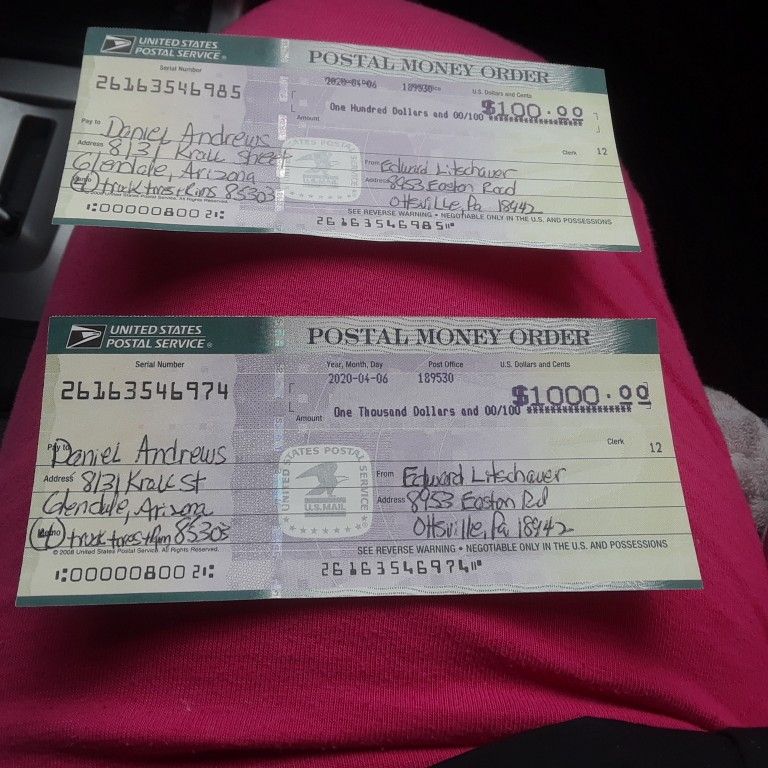 UNITED STATES
POSTAL SERVICE®
POSTAL MONEY ORDER
Serial Number
26163546985
2020-04-06 189530
U.S. Dollars and Cents
$100.00
One Hundred Dollars and 00/100
Amount
Clerk 12
Pay to Daniel Andrews
Address 8131 Krall Street
Glendale, Arizona
(4) truck tires + Rims 85303
From Edward Litschauer
Address 8953 Easton Road
Ottsville, Pa 18942
U.S. MAIL
SEE REVERSE WARNING • NEGOTIABLE ONLY IN THE U.S. AND POSSESSIONS
⑆00000800 2⑆
26163546985⑈
UNITED STATES
POSTAL SERVICE®
POSTAL MONEY ORDER
Serial Number
26163546974
Year, Month, Day Post Office U.S. Dollars and Cents
2020-04-06 189530
$1000.00
Amount One Thousand Dollars and 00/100
Clerk 12
Pay to Daniel Andrews
Address 8131 Krall St
Glendale, Arizona
(4) truck tires + Rim 85303
UNITED STATES POSTAL SERVICE
U.S. MAIL
From Edward Litschauer
Address 8953 Easton Rd
Ottsville, Pa 18942
© 2008 United States Postal Service. All Rights Reserved.
SEE REVERSE WARNING • NEGOTIABLE ONLY IN THE U.S. AND POSSESSIONS
⑆00000800 2⑆
26163546974⑈